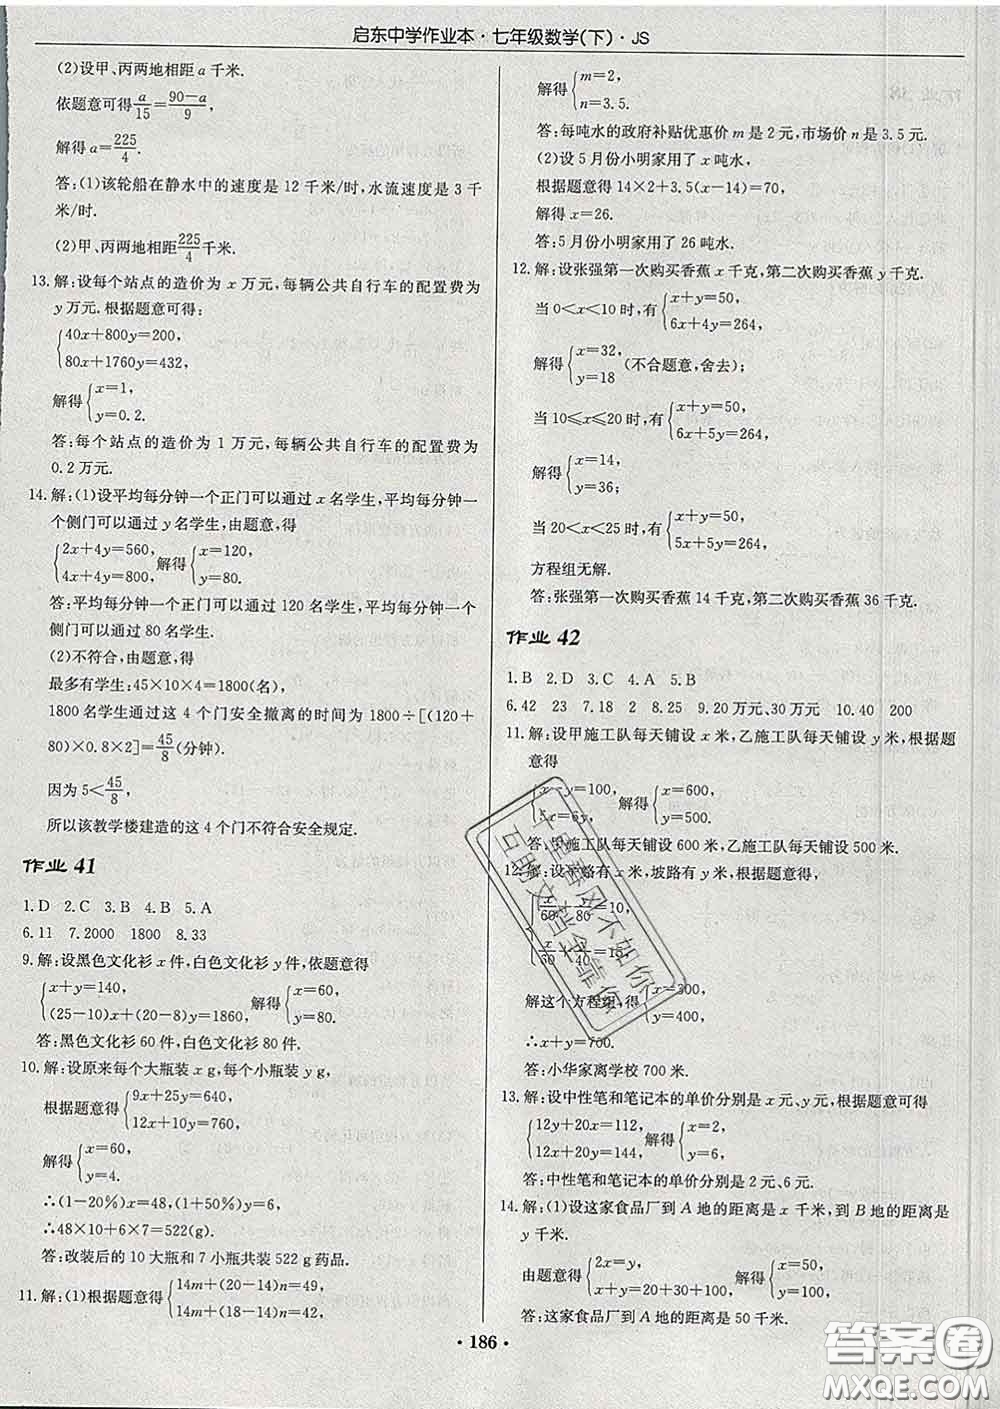 启东中学作业本·七年级数学(下)·JS
(2)设甲、丙两地相距 a 千米.
依题意可得 a/15=(90-a)/9,
解得 a=225/4.
答:(1)该轮船在静水中的速度是 12 千米/时,水流速度是 3 千
米/时.
(2)甲、丙两地相距 225/4 千米.
13.解:设每个站点的造价为 x 万元,每辆公共自行车的配置费为
y 万元.根据题意可得:
{40x+800y=200,
80x+1760y=432,
解得{x=1,
y=0.2.
答:每个站点的造价为 1 万元,每辆公共自行车的配置费为
0.2 万元.
14.解:(1)设平均每分钟一个正门可以通过 x 名学生,平均每分钟一
个侧门可以通过 y 名学生,由题意,得
{2x+4y=560, 解得{x=120,
4x+4y=800, y=80.
答:平均每分钟一个正门可以通过 120 名学生,平均每分钟一个
侧门可以通过 80 名学生.
(2)不符合,由题意,得
最多有学生:45×10×4=1800(名),
1800 名学生通过这 4 个门安全撤离的时间为 1800÷[(120+
80)×0.8×2]=45/8(分钟).
因为 5<45/8,
所以该教学楼建造的这 4 个门不符合安全规定.
作业 41
1.D 2.C 3.B 4.B 5.A
6.11 7.2000 1800 8.33
9.解:设黑色文化衫 x 件,白色文化衫 y 件,依题意得
{x+y=140, 解得{x=60,
(25-10)x+(20-8)y=1860, y=80.
答:黑色文化衫 60 件,白色文化衫 80 件.
10.解:设原来每个大瓶装 x g,每个小瓶装 y g,
根据题意得{9x+25y=640,
12x+10y=760,
解得{x=60,
y=4.
∴(1-20%)x=48,(1+50%)y=6,
∴48×10+6×7=522(g).
答:改装后的 10 大瓶和 7 小瓶共装 522 g药品.
11.解:(1)根据题意得{14m+(20-14)n=49,
14m+(18-14)n=42,
解得{m=2,
n=3.5.
答:每吨水的政府补贴优惠价 m 是 2 元,市场价 n 是 3.5 元.
(2)设 5 月份小明家用了 x 吨水,
根据题意得 14×2+3.5(x-14)=70,
解得 x=26.
答:5 月份小明家用了 26 吨水.
12.解:设张强第一次购买香蕉 x 千克,第二次购买香蕉 y 千克.
当 0<x<10 时,有{x+y=50,
6x+4y=264,
解得{x=32, (不合题意,舍去);
y=18
当 10≤x≤20 时,有{x+y=50,
6x+5y=264,
解得{x=14,
y=36;
当 20<x<25 时,有{x+y=50,
5x+5y=264,
方程组无解.
答:张强第一次购买香蕉 14 千克,第二次购买香蕉 36 千克.
作业 42
1.B 2.D 3.C 4.A 5.B
6.42 23 7.18 2 8.25 9.20 万元、30 万元 10.40 200
11.解:设甲施工队每天铺设 x 米,乙施工队每天铺设 y 米,根据题
意得
{x-y=100, 解得{x=600,
5x=6y, y=500.
答:甲施工队每天铺设 600 米,乙施工队每天铺设 500 米.
12.解:设平路有 x 米,坡路有 y 米,根据题意得,
{x/60+y/80=10,
x/30+y/40=15,
解这个方程组,得{x=300,
y=400,
∴x+y=700.
答:小华家离学校 700 米.
13.解:设中性笔和笔记本的单价分别是 x 元、y 元,根据题意可得
{12y+20x=112, 解得{x=2,
12x+20y=144, y=6.
答:中性笔和笔记本的单价分别是 2 元、6 元.
14.解:(1)设这家食品厂到 A 地的距离是 x 千米,到 B 地的距离是
y 千米.
由题意得{2x=y, 解得{x=50,
x+y=20+30+100, y=100.
答:这家食品厂到 A 地的距离是 50 千米.
千里春风不如你
互助文档全靠你
·186·
答案圈
MXQE.COM